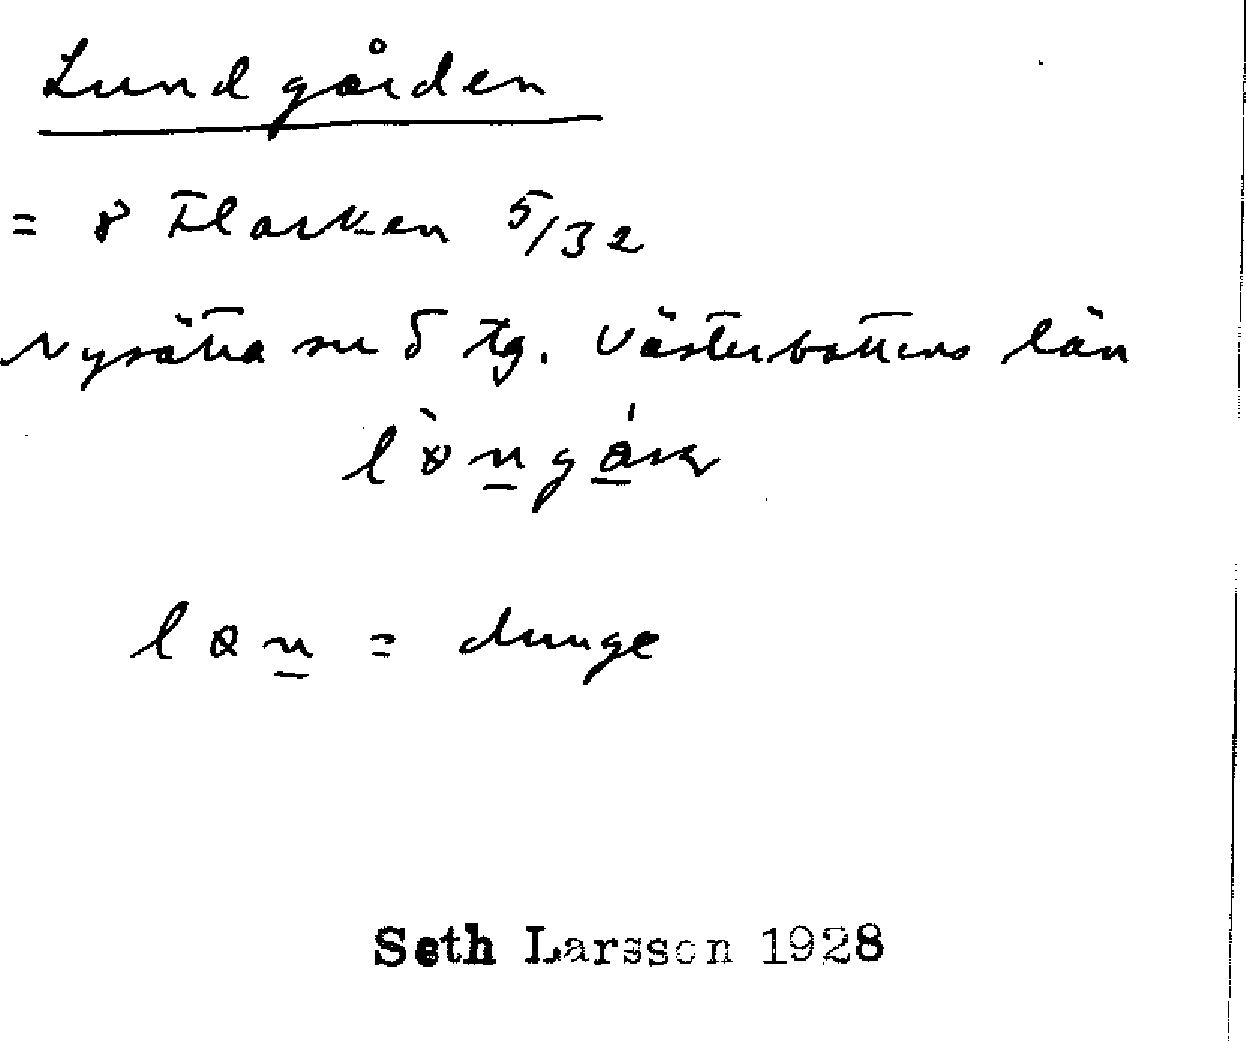 Lundgården
= 8 Flarken 5/32
Nysätra sn S tg. Västerbottens län
lun = dunge
Seth Larsson 1928